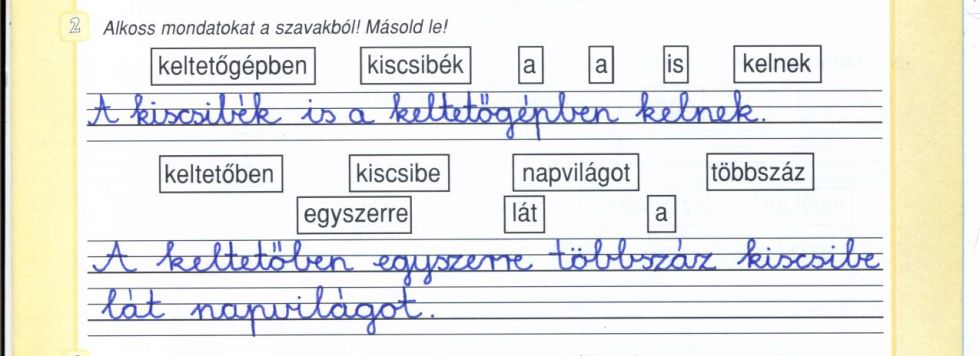 2 Alkoss mondatokat a szavakból! Másold le!
keltetőgépben kiscsibék a a is kelnek
A kiscsibék is a keltetőgépben kelnek.
keltetőben kiscsibe napvilágot többszáz
egyszerre lát a
A keltetőben egyszerre többszáz kiscsibe
lát napvilágot.